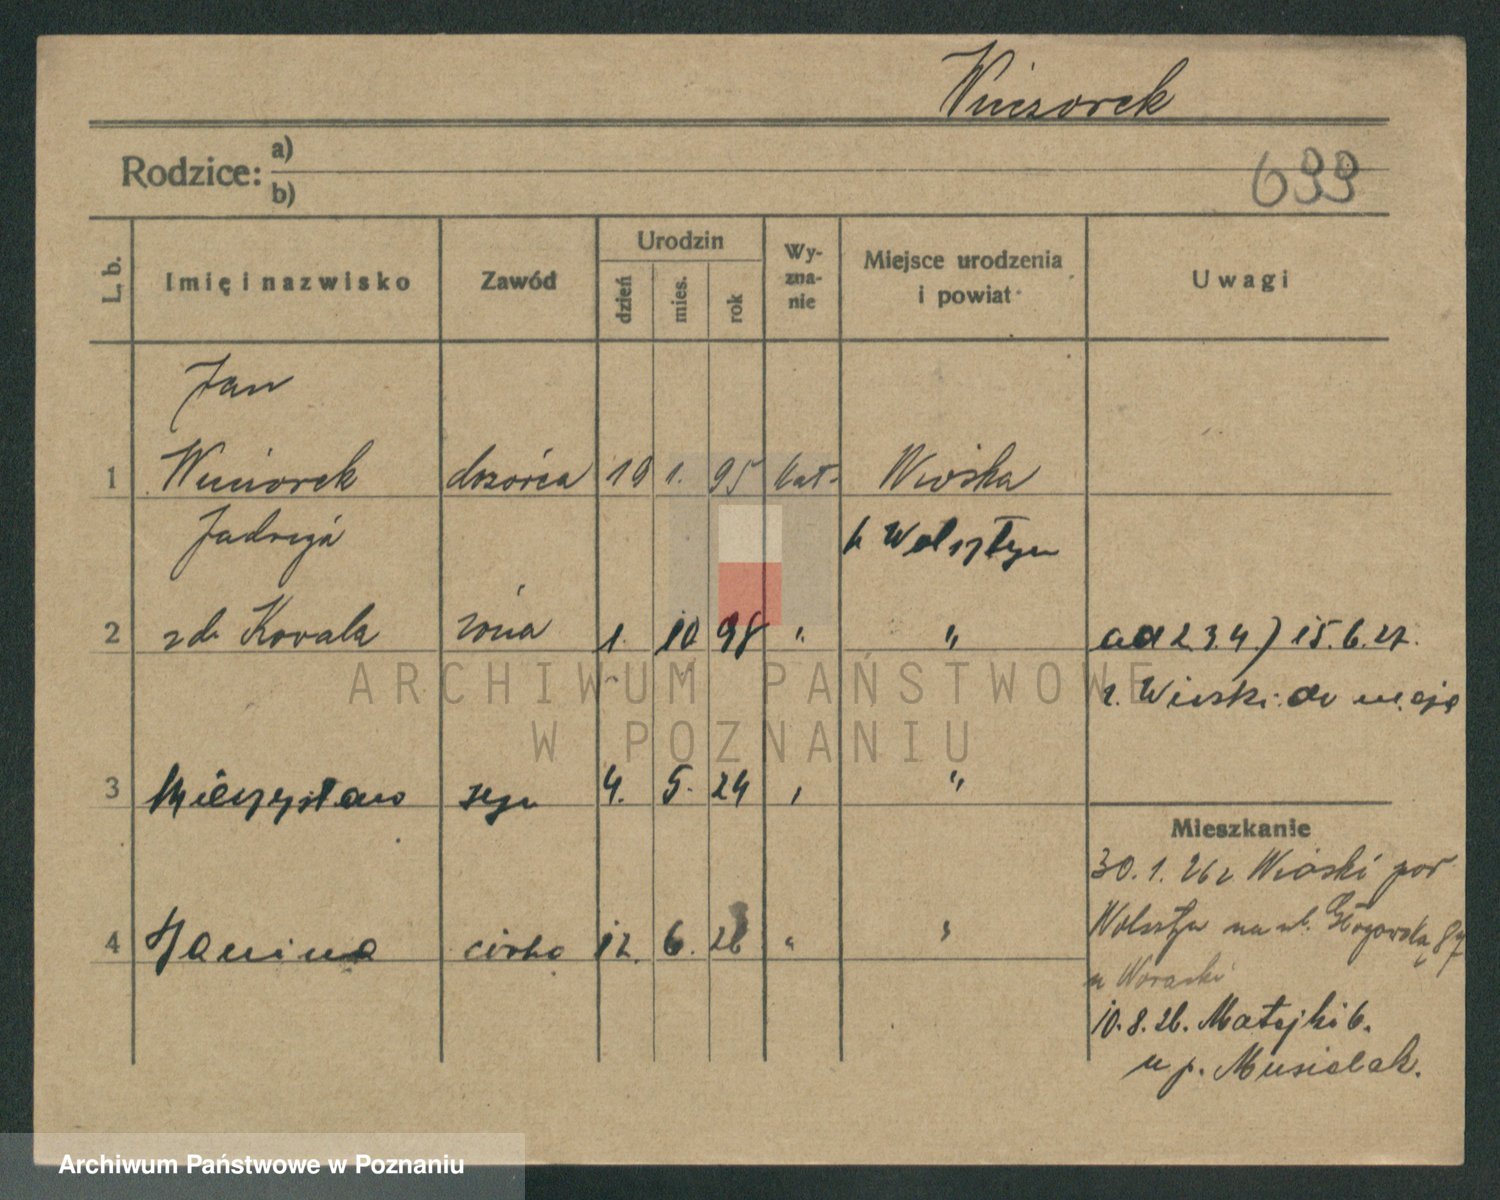 Wieczorek
Rodzice: a)
b)
699
L. b. Imię i nazwisko Zawód Urodzin dzień mies. rok Wy-zna-nie Miejsce urodzenia i powiat Uwagi
Jan
1 Wieczorek dozorca 19 1. 95 kat. Wioska
Jadwiga
p. Wolsztyn
2 zd. Kowala żona 1. 10 98 " " ad 2.3.4.) 15.6.27.
z Wioski do męża
3 Mieczysław syn 4. 5. 24 " "
Mieszkanie
30.1.26 z Wioski pow
Wolsztyn na ul. Głogowską 87
4 Janina córka 12. 6. 26 " "
u
10.8.26. Matejki 6.
u p. Musielak.
ARCHIWUM PAŃSTWOWE
W POZNANIU
Archiwum Państwowe w Poznaniu